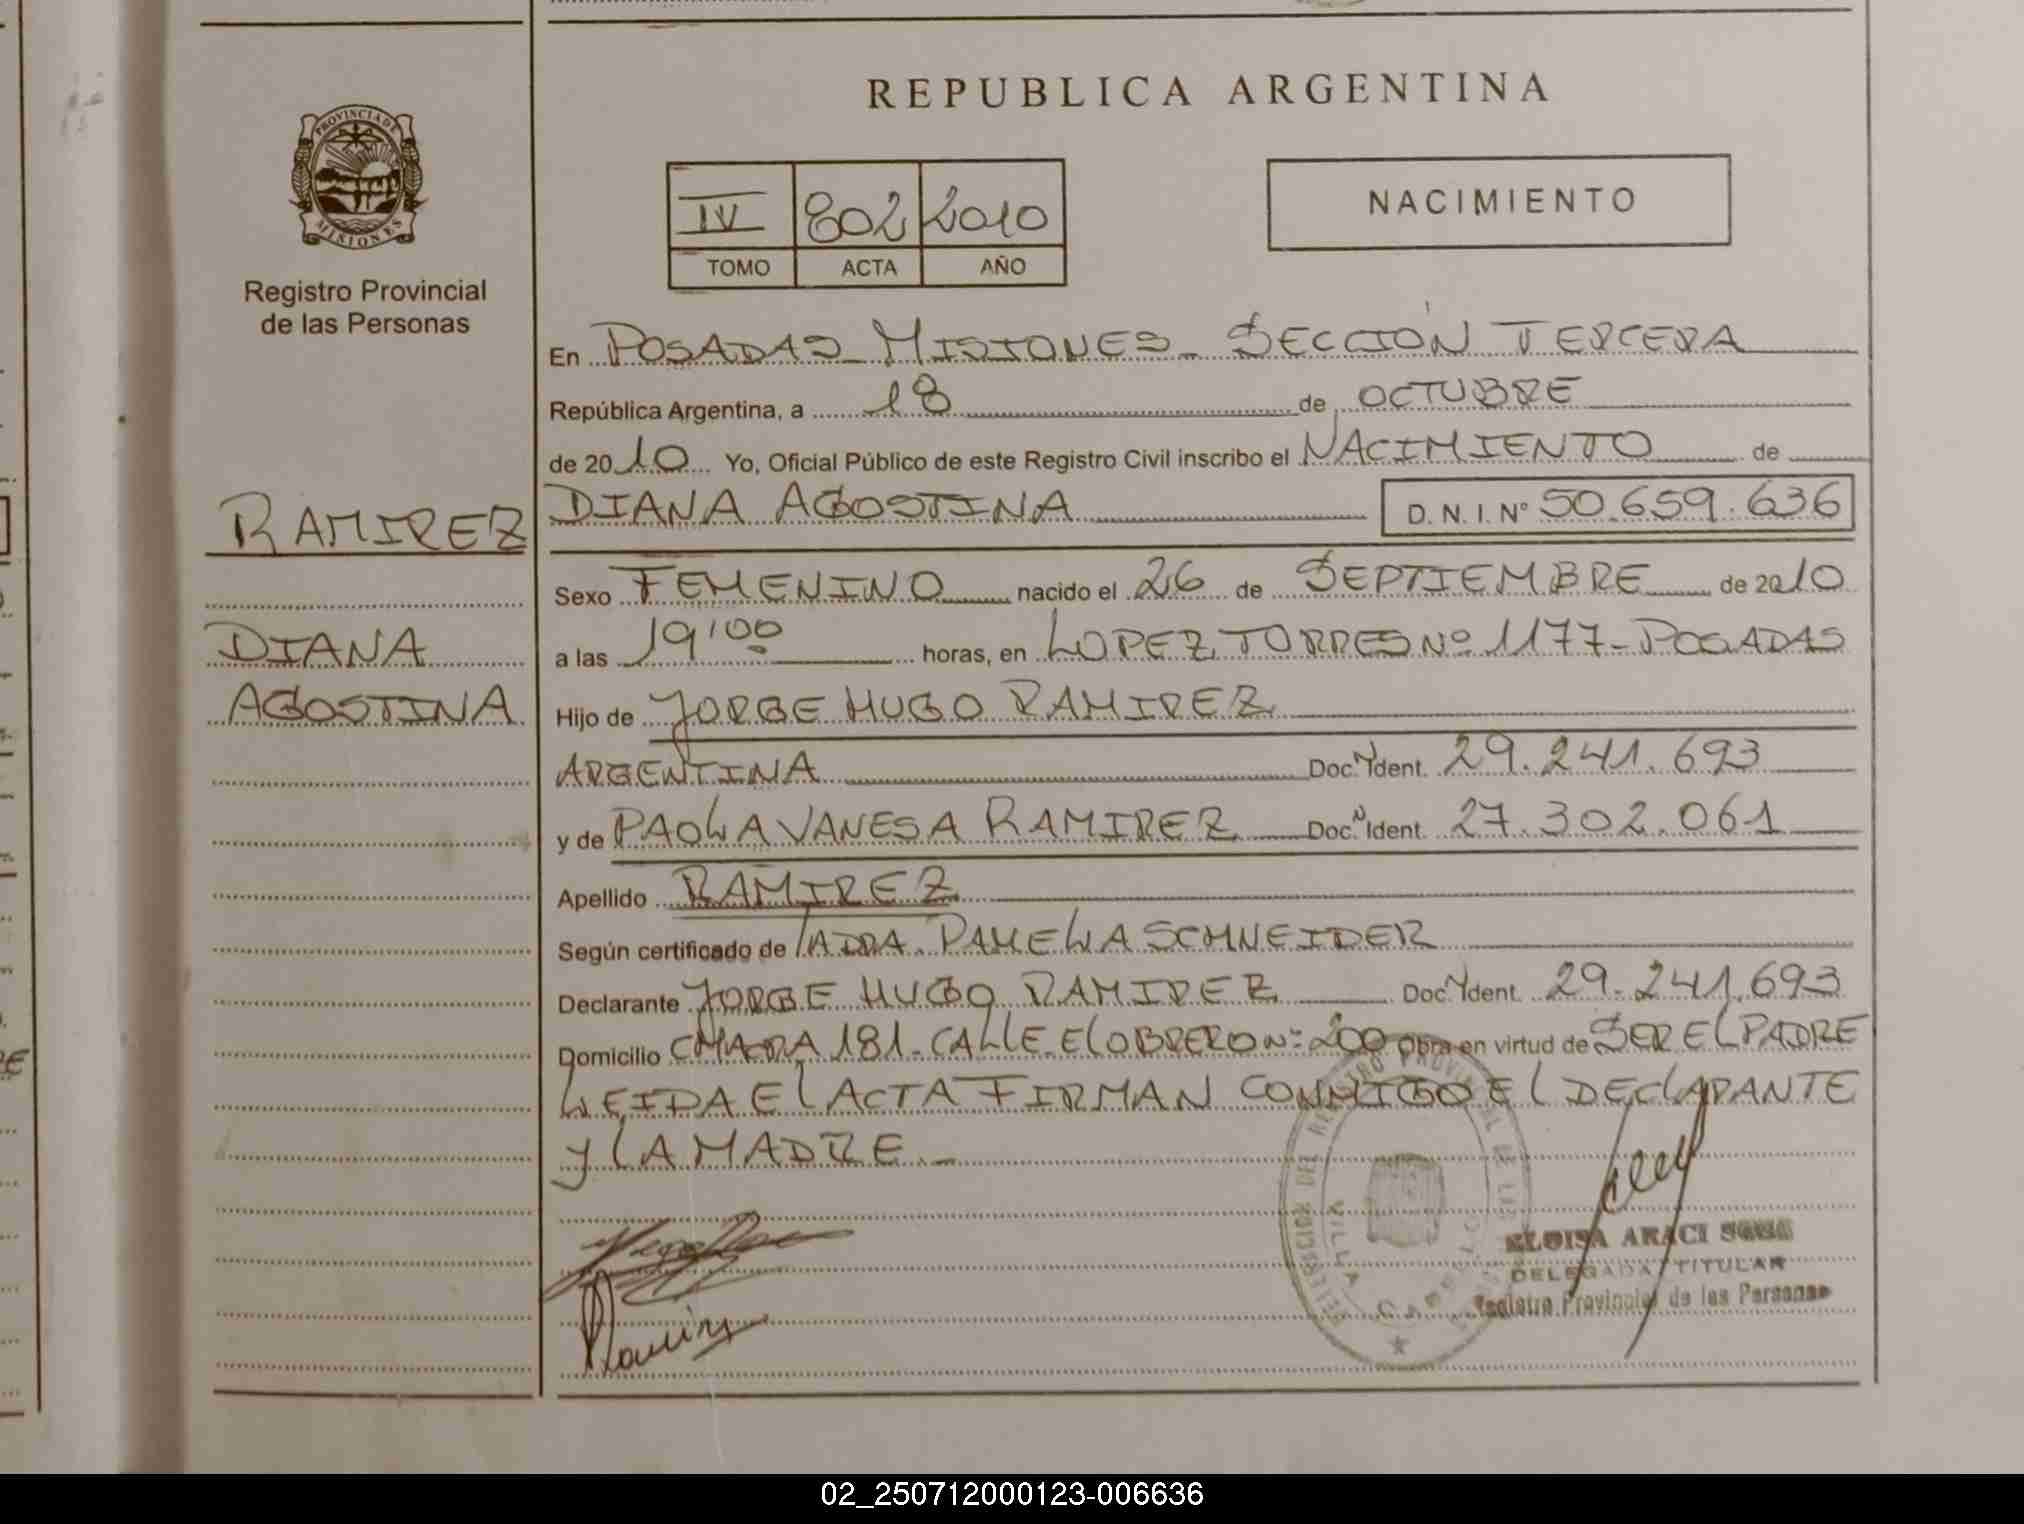 REPUBLICA ARGENTINA
PROVINCIA DE
MISIONES
Registro Provincial
de las Personas
IV 802 2010
TOMO ACTA AÑO
NACIMIENTO
En POSADAS MISIONES - SECCIÓN TERCERA
República Argentina, a 18 de OCTUBRE
de 2010 Yo, Oficial Público de este Registro Civil inscribo el NACIMIENTO de
RAMIREZ
DIANA AGOSTINA D. N. I. Nº 50.659.636
Sexo FEMENINO nacido el 26 de SEPTIEMBRE de 2010
DIANA
a las 19'00 horas, en LOPEZ TORRES Nº 1177 - POSADAS
AGOSTINA
Hijo de JORGE HUGO RAMIREZ
ARGENTINA Doc. Ident. 29.241.693
y de PAOLA VANESA RAMIREZ Doc. Ident. 27.302.061
Apellido RAMIREZ
Según certificado de PAMELA SCHNEIDER
Declarante JORGE HUGO RAMIREZ Doc. Ident. 29.241.693
Domicilio CHACRA 181 - CALLE EL OBRERO Nº 200 Obra en virtud de SER EL PADRE
LEIDA EL ACTA FIRMAN CONMIGO EL DECLARANTE
Y LA MADRE. -
ELOISA ARACI
DELEGADA TITULAR
Registro Provincial de las Personas
VILLA CABELLO
02_250712000123-006636